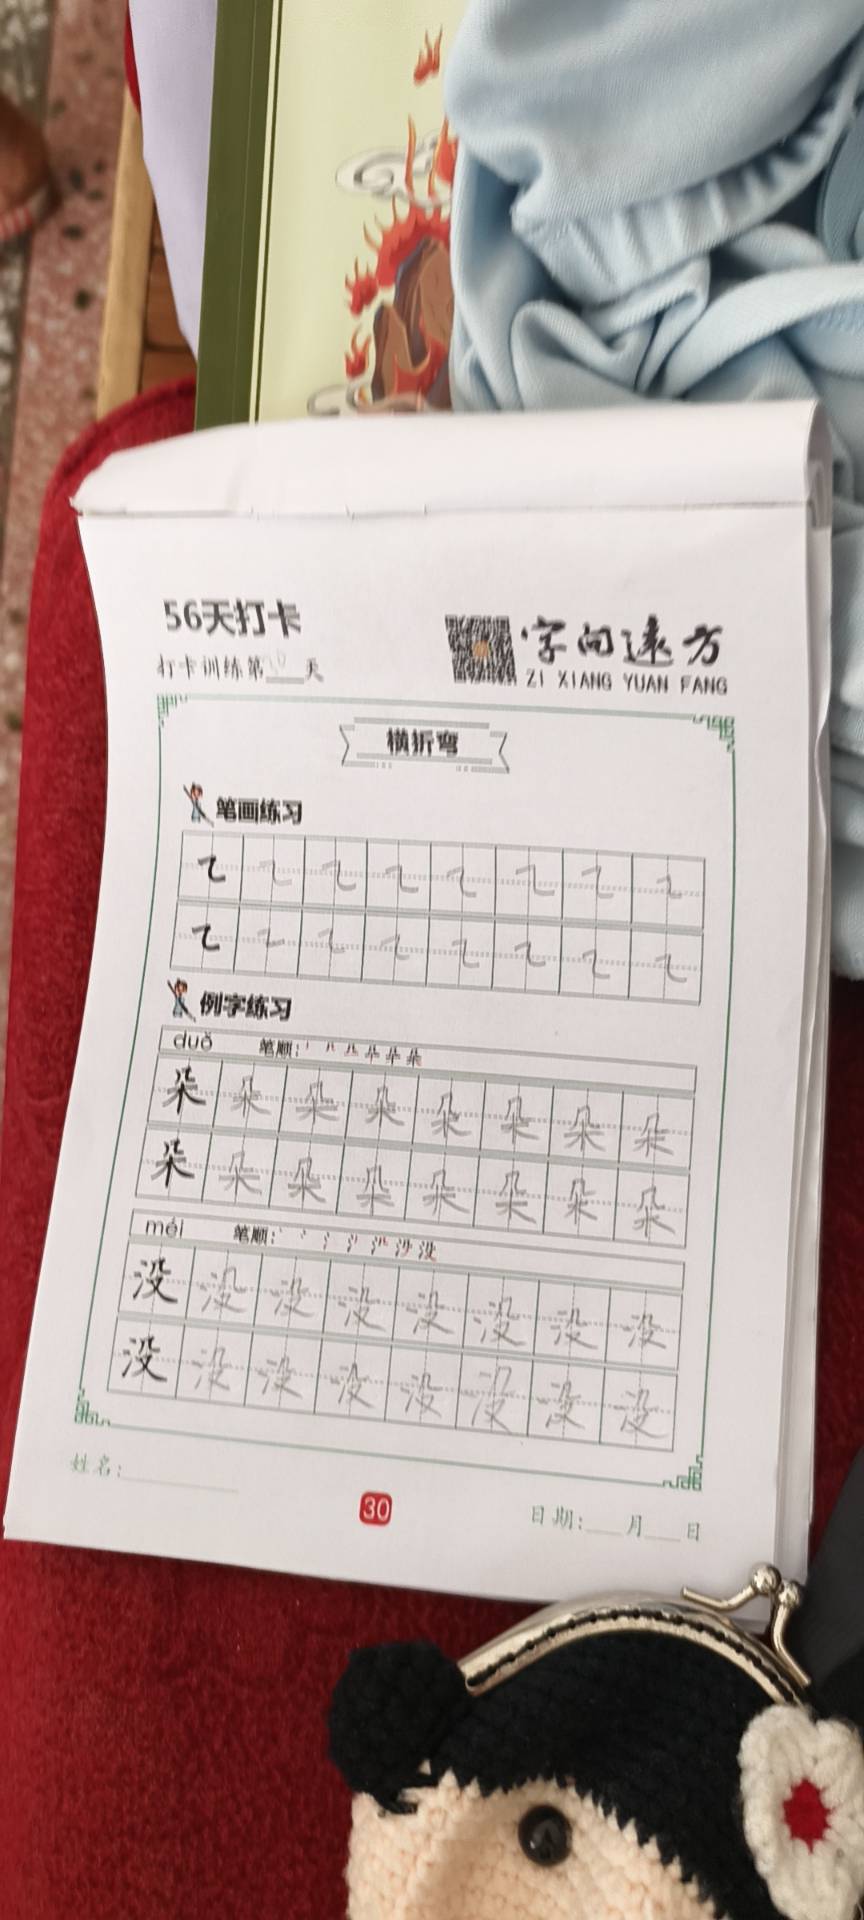 56天打卡
字向远方
打卡训练第___天
ZI XIANG YUAN FANG
横折弯
笔画练习
㇍ ㇍ ㇍ ㇍ ㇍ ㇍ ㇍ ㇍
㇍ ㇍ ㇍ ㇍ ㇍ ㇍ ㇍ ㇍
例字练习
duǒ 笔顺:
朵 朵 朵 朵 朵 朵 朵 朵
朵 朵 朵 朵 朵 朵 朵 朵
méi 笔顺:
没 没 没 没 没 没 没 没
没 没 没 没 没 没 没 没
姓名:
30
日期:___月___日